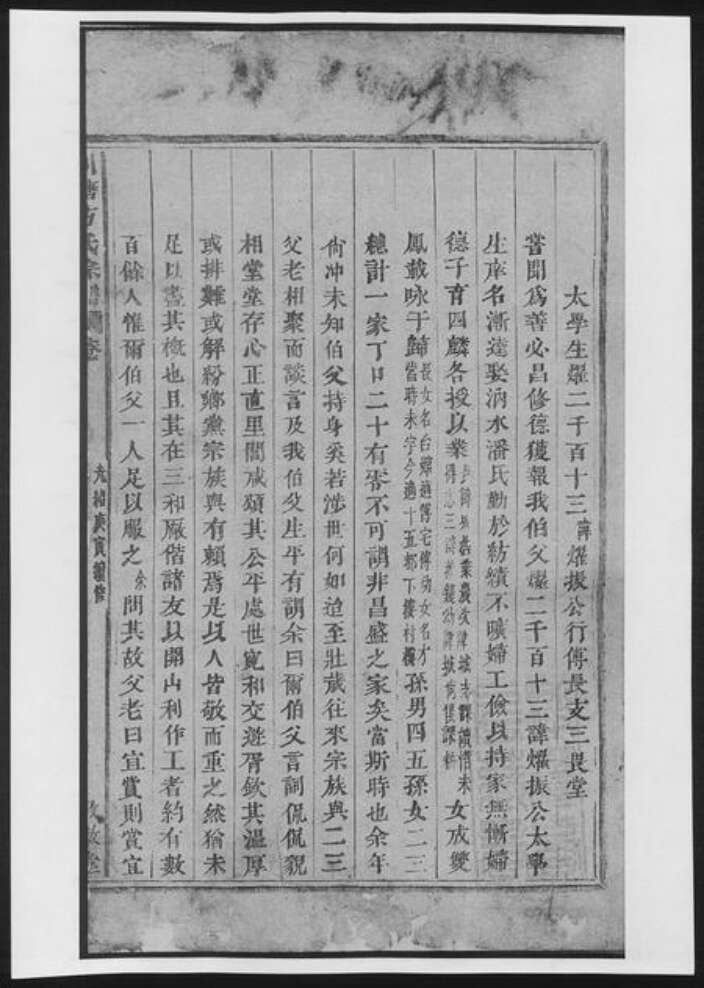 太學生燿二千百十三諱燿振公行傳長支三畏堂
嘗聞為善必昌修德獲報我伯父燿二千百十三諱燿振公太學
生庠名漸達娶汭水潘氏勤於紡績不曠婦工儉以持家無慚婦
德子育四麟各授以業女成雙
鳳載咏于歸長女名台燿適傅宅傳幼女名才當時未字今適十五都下樓村樓孫男四五孫女二三
總計一家丁口二十有零不可謂非昌盛之家矣當斯時也余年
尙冲未知伯父持身奚若涉世何如迨至壯歲往來宗族與二三
父老相聚而談言及我伯父生平有謂余曰爾伯父言詞侃侃貌
相堂堂存心正直里閭咸頌其公平處世寬和交遊胥欽其溫厚
或排難或解紛鄉黨宗族與有賴焉是以人皆敬而重之然猶未
足以盡其槪也且其在三和厰偕諸友以開山利作工者約有數
百餘人惟爾伯父一人足以服之余問其故父老曰宜賞則賞宜
塘方氏宗譜 卷
光緒庚寅續修